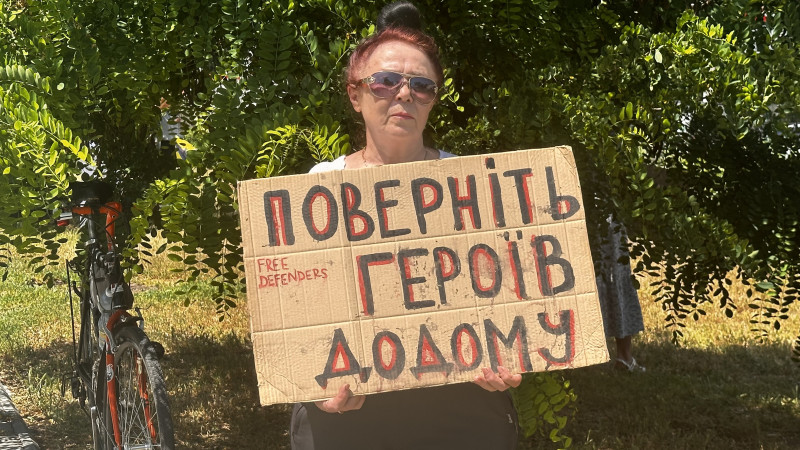 ПОВЕРНІТЬ
FREE
DEFENDERS
ГЕРОЇВ
ДОДОМУ